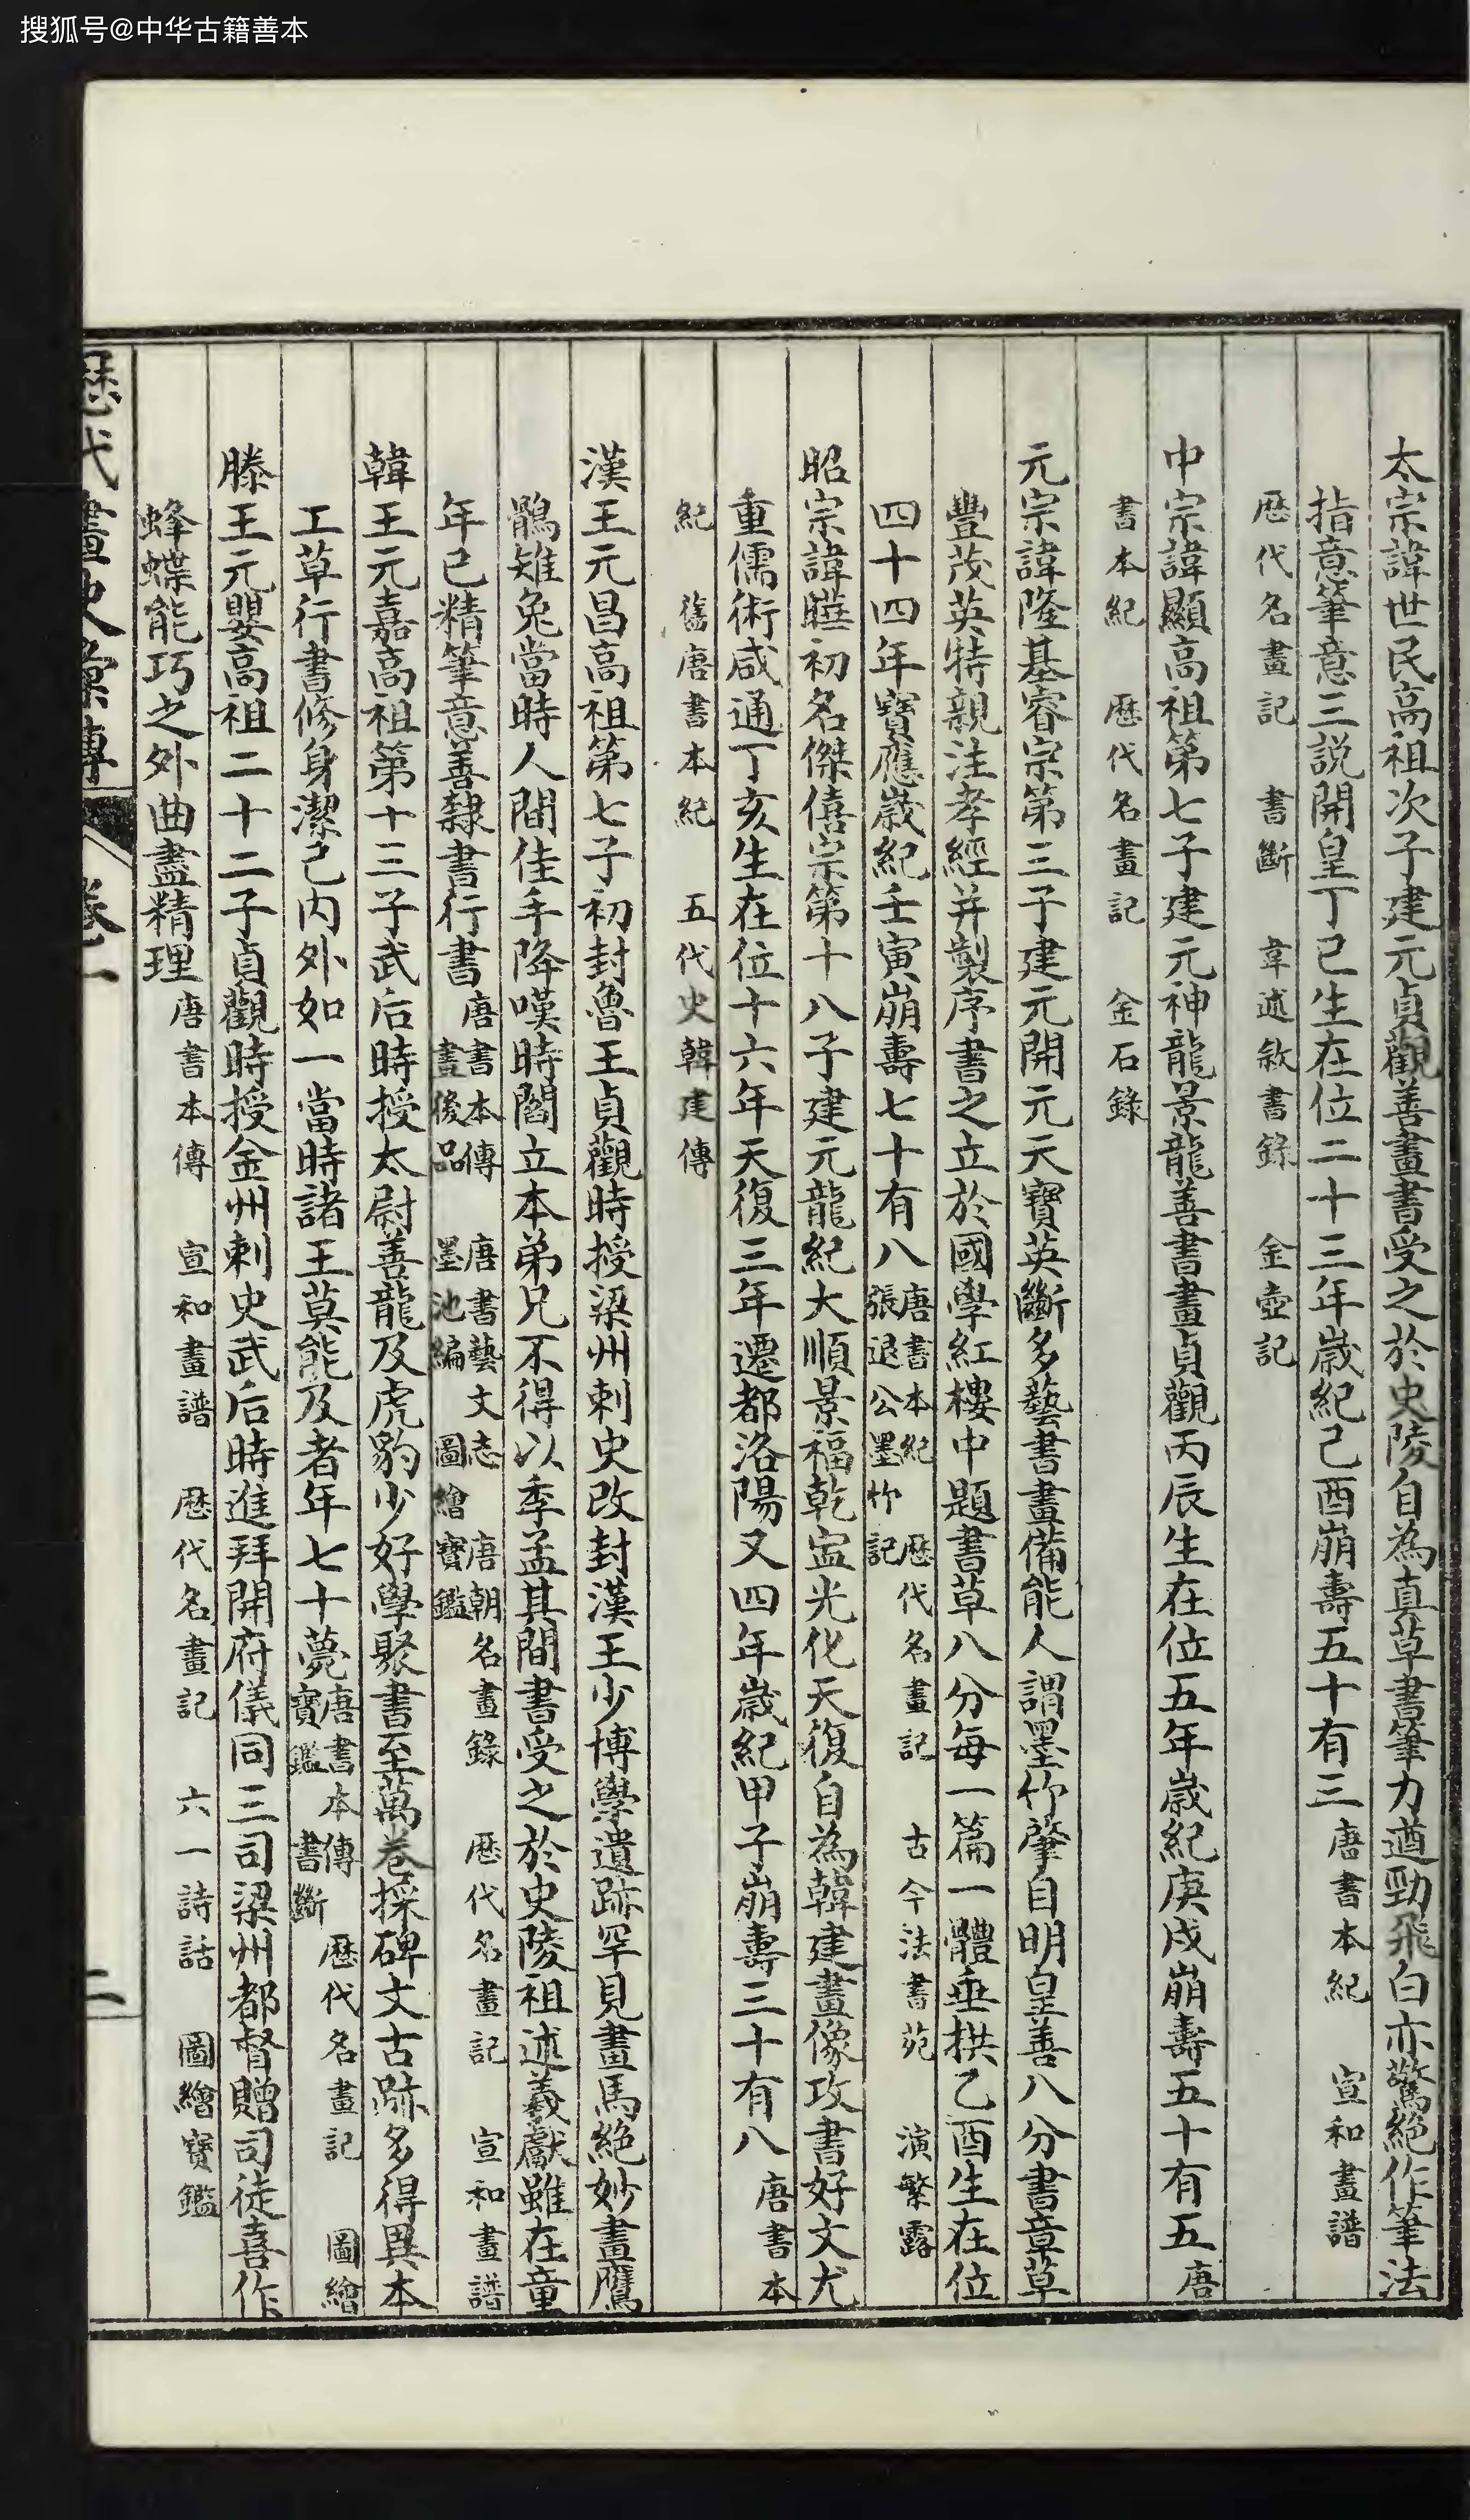 搜狐号@中华古籍善本
太宗諱世民高祖次子建元貞觀善畫書受之於史陵自為真草書筆力遒勁飛白亦驚絕作筆法
指意筆意三説開皇丁已生在位二十三年歲紀己酉崩壽五十有三唐書本紀 宣和畫譜
歷代名畫記 書斷 韋述敘書錄 金壺記
中宗諱顯高祖第七子建元神龍景龍善書畫貞觀丙辰生在位五年歲紀庚戌崩壽五十有五唐
書本紀 歷代名畫記 金石錄
元宗諱隆基睿宗第三子建元開元天寶英斷多藝書畫備能人謂墨竹肇自明皇善八分書章草
豐茂英特親注孝經并製序書之立於國學紅樓中題書草八分每一篇一體垂拱乙酉生在位
四十四年寶應歲紀壬寅崩壽七十有八唐書本紀 歷代名畫記 古今法書苑 演繁露
張退公墨竹記
昭宗諱曄初名傑僖宗第十八子建元龍紀大順景福乾寍光化天復自為韓建畫像攻書好文尤
重儒術咸通丁亥生在位十六年天復三年遷都洛陽又四年歲紀甲子崩壽三十有八唐書本
紀 舊唐書本紀 五代史韓建傳
漢王元昌高祖第七子初封魯王貞觀時授梁州刺史改封漢王少博學遺跡罕見畫馬絕妙畫鷹
鶻雉兔當時人間佳手降嘆時閻立本弟兄不得以季孟其間書受之於史陵祖述羲獻雖在童
年已精筆意善隸書行書唐書本傳 唐書藝文志 唐朝名畫錄 歷代名畫記 宣和畫譜
畫後品 墨池編 圖繪寶鑑
韓王元嘉高祖第十三子武后時授太尉善龍及虎豹少好學聚書至萬卷採碑文古跡多得異本
工草行書修身潔己内外如一當時諸王莫能及者年七十薨唐書本傳 歷代名畫記 圖繪
寶鑑 書斷
滕王元嬰高祖二十二子貞觀時授金州刺史武后時進拜開府儀同三司梁州都督贈司徒喜作
蜂蝶能巧之外曲盡精理唐書本傳 宣和畫譜 歷代名畫記 六一詩話 圖繪寶鑑
歷代畫史彙傳 卷一 二